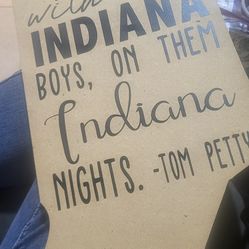 INDIANA
BOYS, ON THEM
Indiana
NIGHTS. -TOM PETTY